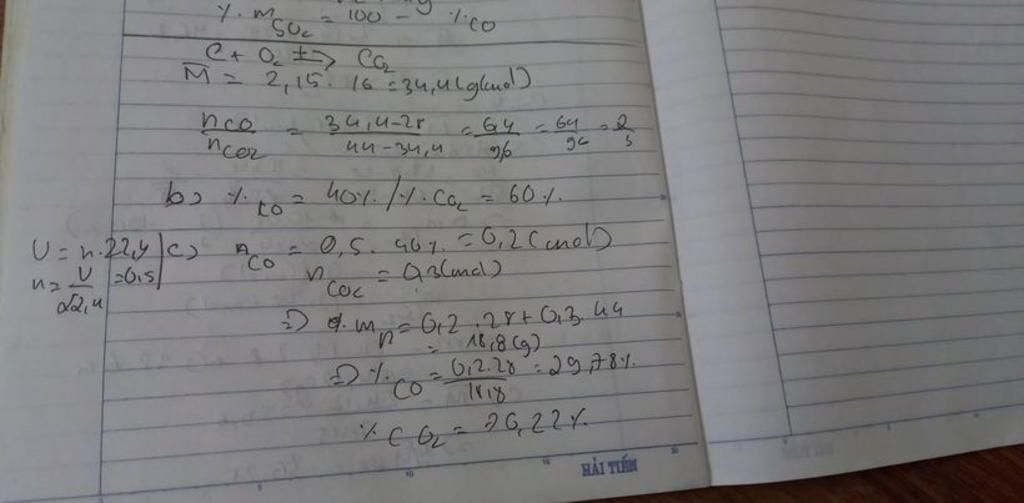 %m SO2 = 100 - % CO
C + O2 ⇌ CO2
M̄ = 2,15 . 16 = 34,4 (g/mol)
nCO / nCO2 = (34,4-28) / (44-34,4) = 6,4 / 9,6 = 64 / 96 = 2 / 3
b) % CO = 40% / % CO2 = 60%
V = n.22,4 | c) nCO = 0,5 . 40% = 0,2 (mol)
n = V / 22,4 = 0,5 | nCO2 = 0,3 (mol)
=> m = 0,2 . 28 + 0,3 . 44
= 18,8 (g)
=> % CO = 0,2.28 / 18,8 = 29,78%
% CO2 = 70,22%
HẢI TIẾN